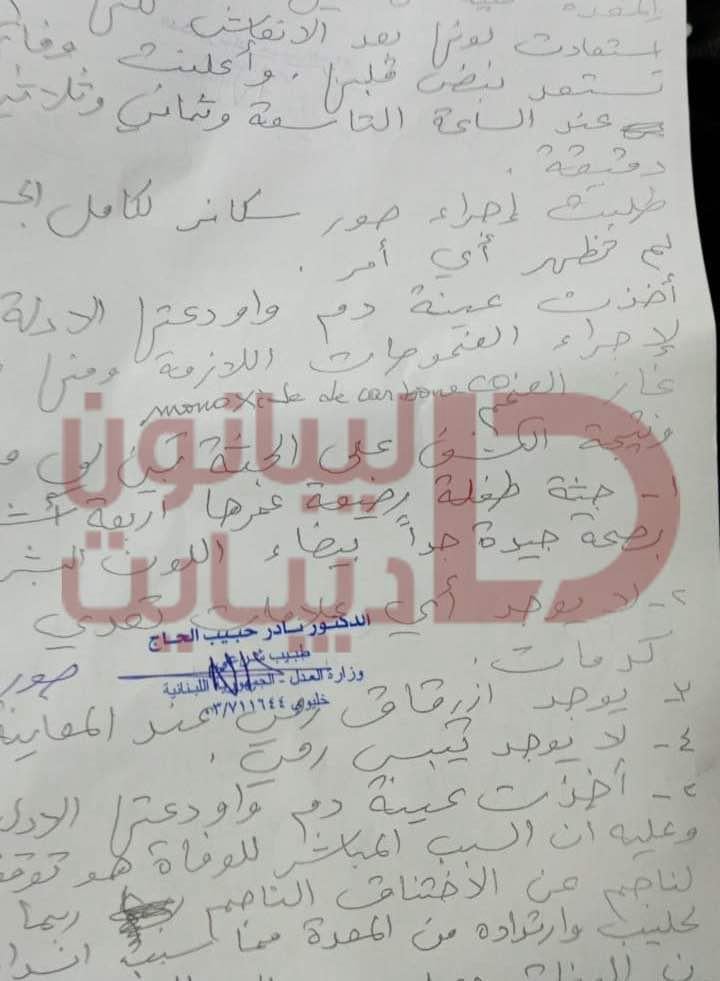 المعدة
استعادت لونها بعد الانعاش
تستعد نبض قلبها . وأعلنت وفا
عند الساعة التاسعة وثماني وثلاثي
دقيقة .
طلبت إجراء صور سكانر لكامل الج
لم تظهر أي أمر .
أخذت عينة دم واودعتها الادلة
لإجراء الفحوصات اللازمة ومنها
غاز الفحم monoxide de carbone CO
ونتيجة الكشف على الجثة تبين لي
١- جثة طفلة رضيعة عمرها أربعة أش
بصحة جيدة جداً بيضاء اللون البشر
٢- لا يوجد أي علامات تعدي
كدمات .
٣- يوجد ازرقاق رمي عند المعاينة
٤- لا يوجد تيبس رمي .
٥- أخذت عينة دم واودعتها الادل
وعليه ان السبب المباشر للوفاة هو توقف
لناجم عن الأختناق الناجم ربما
لحليب وارتداده من المعدة مما سبب انسدا
صور
الدكتور نادر حبيب الحاج
طبيب شرعي
وزارة العدل - الجمهورية اللبنانية
خليوي ٠٣/٧١١٦٤٤
ليبانون
ديبايت